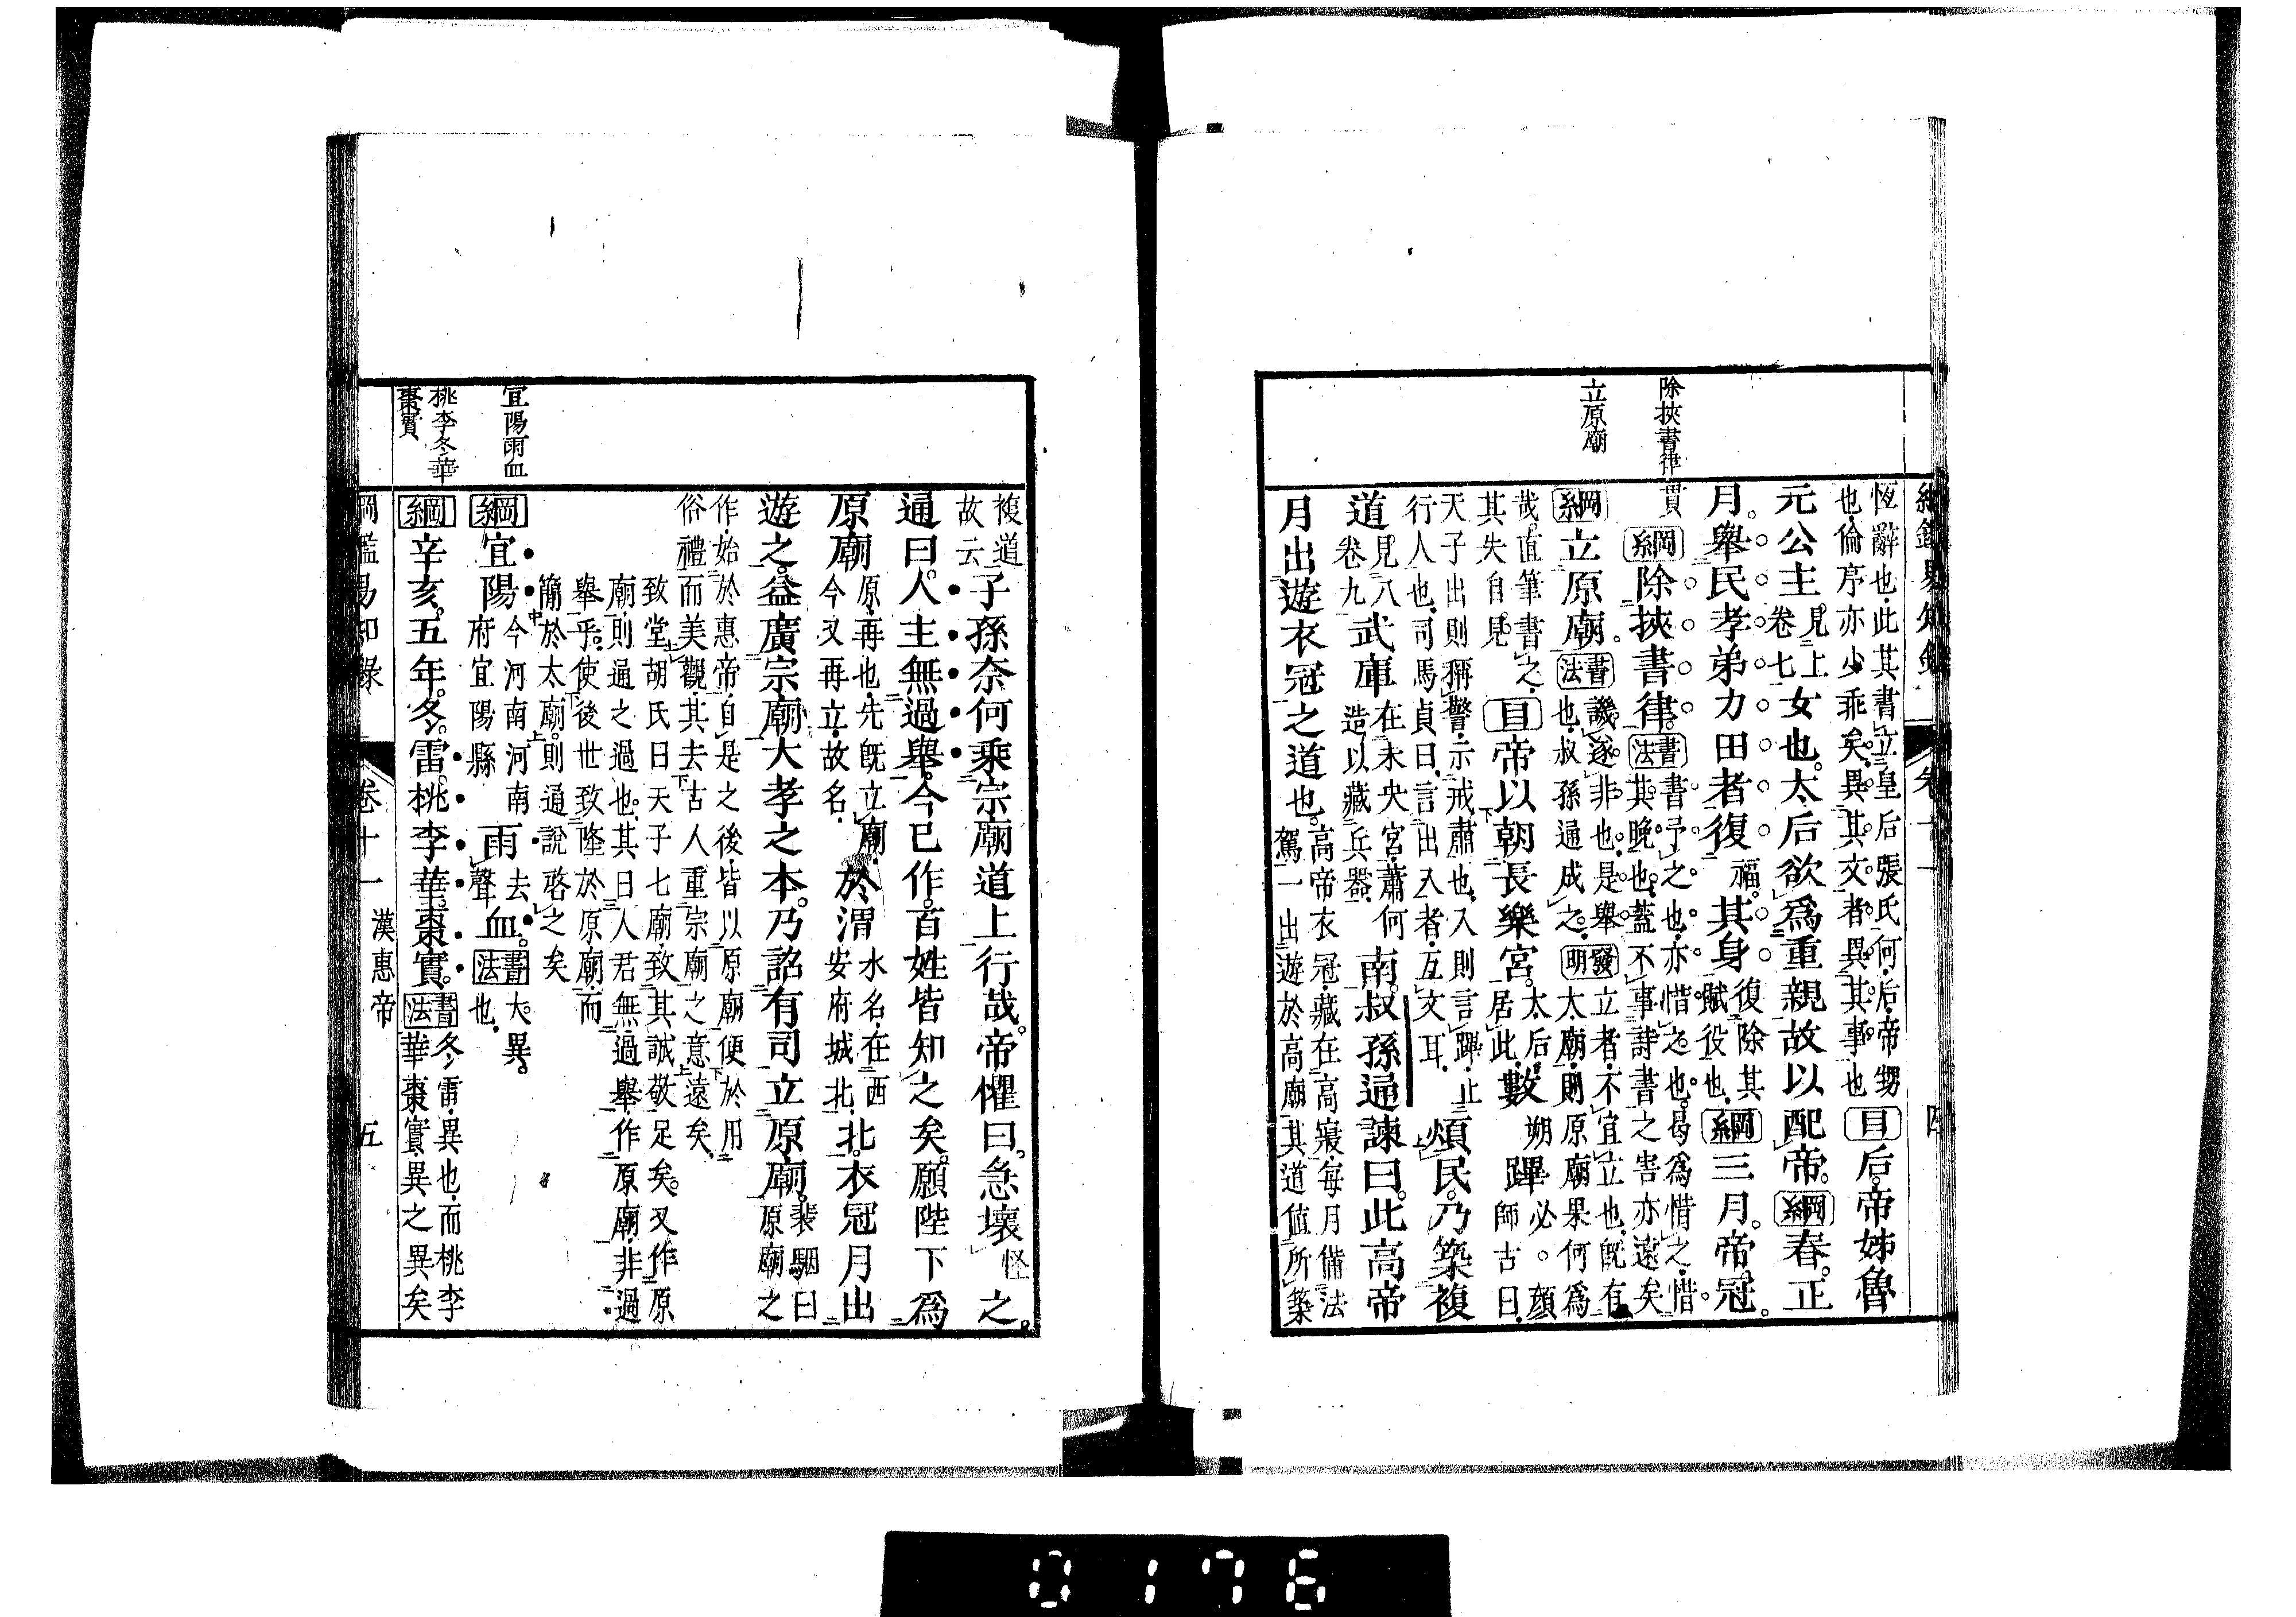 除挾書律
立原廟
恆辭也此其書立皇后張氏何后帝甥
也倫序亦少乖矣異其文者異其事也
目后帝姊魯
元公主見上卷七女也太后欲爲重親故以配帝綱春正
月舉民孝弟力田者復福其身復除其賦役也綱三月帝冠
貫綱除挾書律書法書予之也亦惜之也曷爲惜之惜
其晚也蓋不事詩書之害亦遠矣
綱立原廟書法譏遂非也是舉也叔孫通成之發明立者不宜立也既有太廟則原廟果何爲
哉直筆書之其失自見目帝以朝長樂宮太后居此數朔蹕必。顔師古曰
天子出則稱警示戒肅也入則言蹕止
行人也司馬貞曰言出入者互文耳
煩民乃築複
道見八卷九武庫在未央宮蕭何造以藏兵器南叔孫通諫曰此高帝
月出遊衣冠之道也高帝衣冠藏在高寢每月備法駕一出遊於高廟其道值所築
宜陽雨血
桃李冬華
棗實
複道故云子孫奈何乘宗廟道上行哉帝懼曰急壞怪之
通曰人主無過舉今已作百姓皆知之矣願陛下爲
原廟原再也先既立廟今又再立故名於渭水名在西安府城北北衣冠月出
遊之益廣宗廟大孝之本乃詔有司立原廟裴駰曰原廟之
作始於惠帝自是之後皆以原廟便於用
俗禮而美觀其去古人重宗廟之意遠矣
致堂胡氏曰天子七廟致其誠敬足矣又作原
廟則通之過也其曰人君無過舉作原廟非過
舉乎使後世致隆於原廟而
簡於太廟則通說啓之矣
綱宜陽今河南河南府宜陽縣雨去聲血書法大異也
綱辛亥五年冬雷桃李華棗實書法冬雷異也而桃李華棗實異之異矣
綱鑑易知錄 卷十一 漢惠帝 五